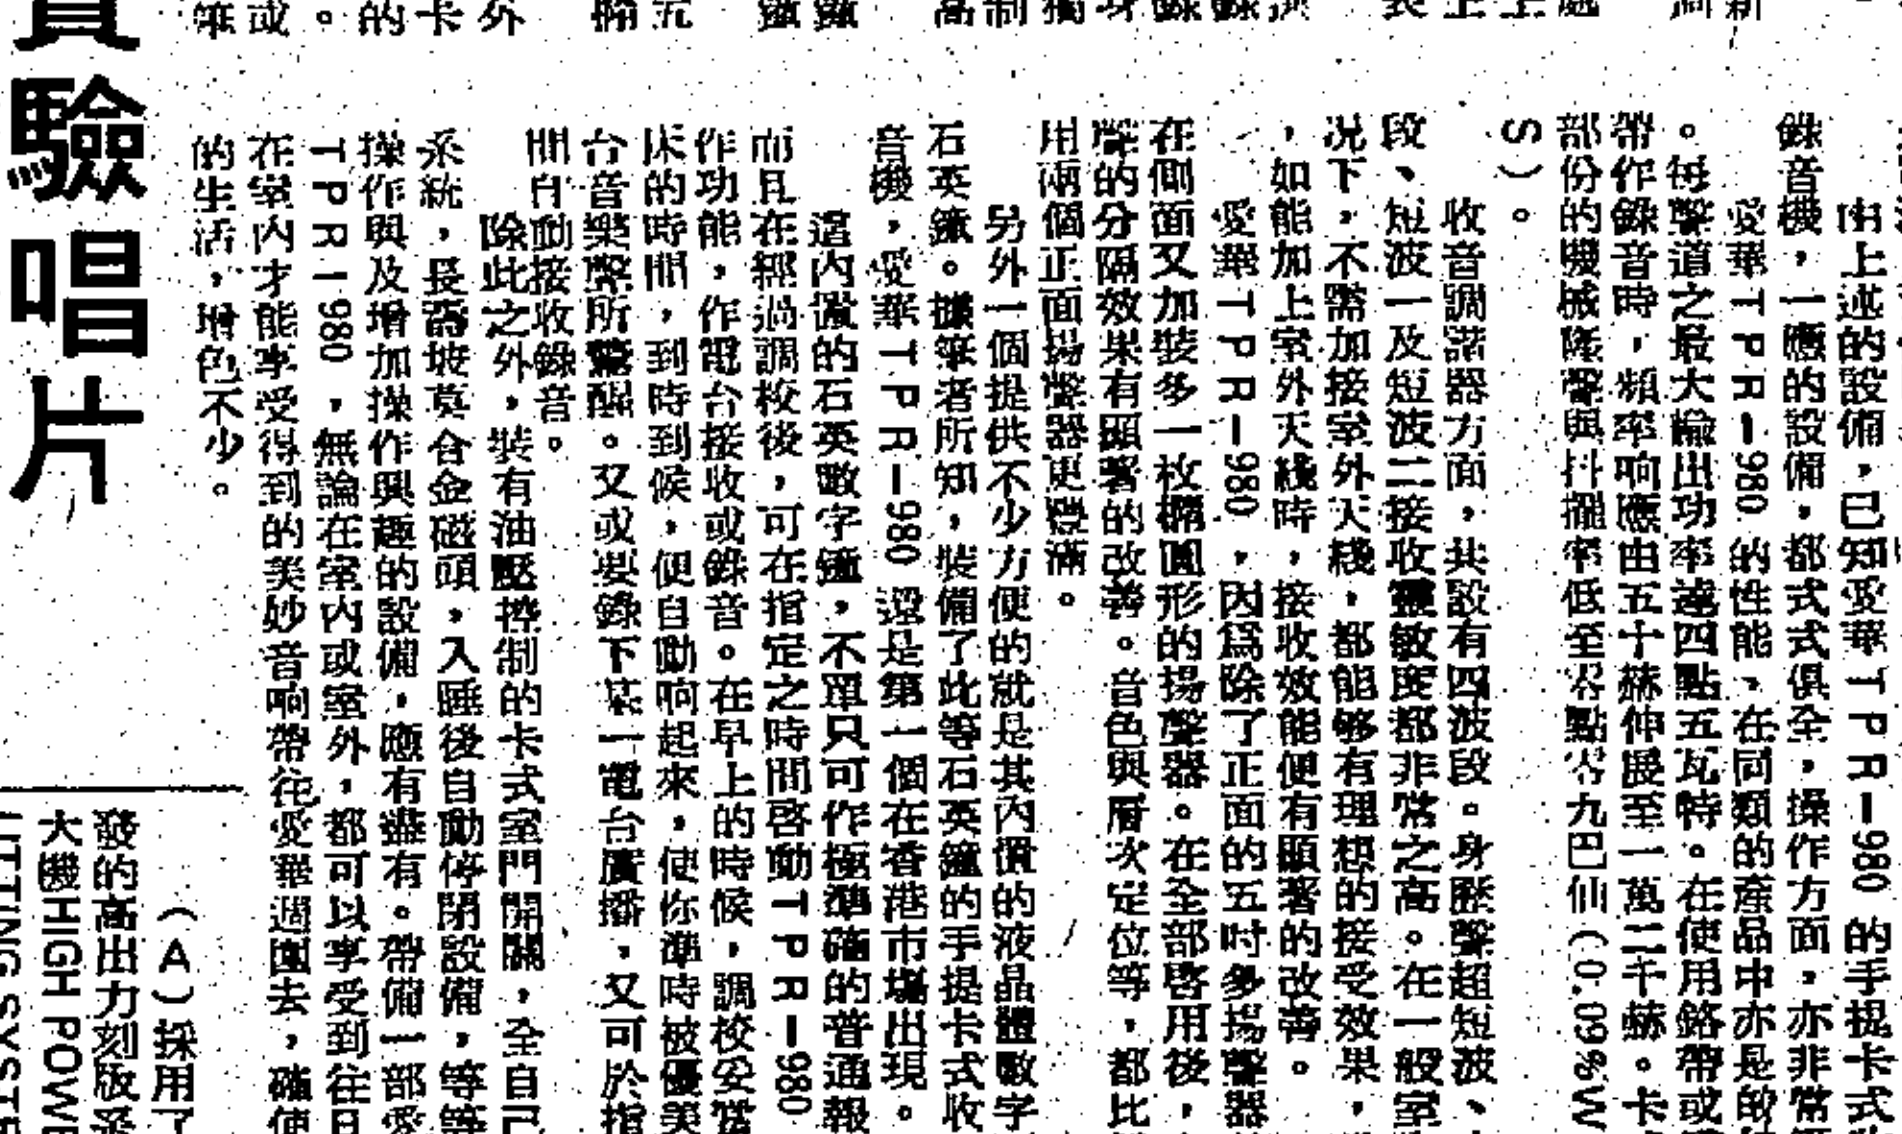 由上述的設備，已知愛華TPR—980的手提卡式
錄音機，一應的設備，都式式俱全，操作方面，亦非常
愛華TPR—980的性能，在同類的產品中亦是的
。每聲道之最大輸出功率達四點五瓦特。在使用鉻帶或
帶作錄音時，頻率响應由五十赫伸展至一萬二千赫。卡
部份的機械隆聲與抖擺率低至零點零九巴仙（0.09%W
S）。
收音調諧器方面，共設有四波段。身歷聲超短波、
段、短波一及短波二接收靈敏度都非常之高。在一般室
况下，不需加接室外天綫，都能够有理想的接受效果，
，如能加上室外天綫時，接收效能便有顯著的改善。
愛華TPR—980，因爲除了正面的五吋多揚聲器
在側面又加裝多一枚橢圓形的揚聲器。在全部啓用後，
聲的分隔效果有顯著的改善。音色與層次定位等，都比
用兩個正面揚聲器更豐滿。
另外一個提供不少方便的就是其內置的液晶體數字
石英鐘。據筆者所知，裝備了此等石英鐘的手提卡式收
音機，愛華TPR—980還是第一個在香港市塲出現。
這內置的石英數字鐘，不單只可作極準確的普通報
而且在經過調校後，可在指定之時間啓動TPR—980
作功能，作電台接收或錄音。在早上的時候，調校妥當
床的時間，到時到候，便自動响起來，使你準時被優美
台音樂聲所驚醒。又或要錄下某一電台廣播，又可於指
間自動接收錄音。
除此之外，裝有油壓控制的卡式室門開關，全自己
系統，長壽坡莫合金磁頭，入睡後自動停閉設備，等等
操作與及增加操作興趣的設備，應有盡有。帶備一部愛
TPR—980，無論在室內或室外，都可以享受到往日
在室內才能享受得到的美妙音响帶往愛華週圍去，確使
的生活，增色不少。
驗唱片
（A）採用了
發的高出力刻版系
大機HIGH POWE
UTTING SYSTE